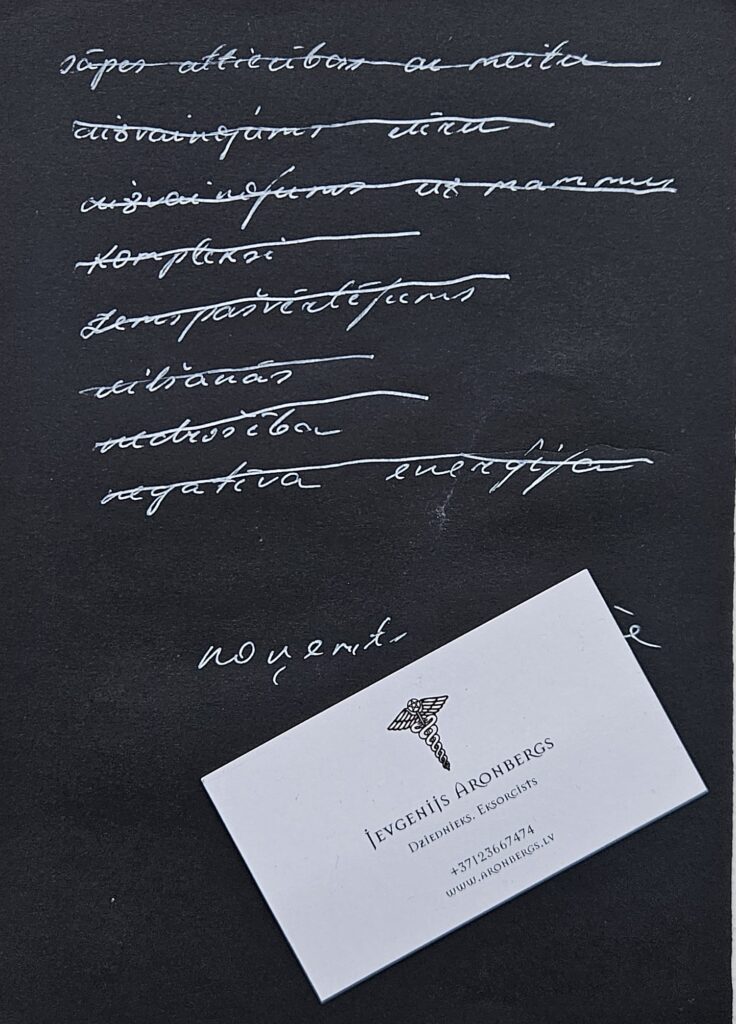 sāpes attiecībās ar meitu
aizvainojums vīru
aizvainojums uz mammu
kompleksi
zems pašvērtējums
vilšanās
nedrošība
negatīva enerģija
noņemts
JEVGENIJS ARONBERGS
DZIEDNIEKS. EKSORCISTS
+37123667474
WWW.ARONBERGS.LV